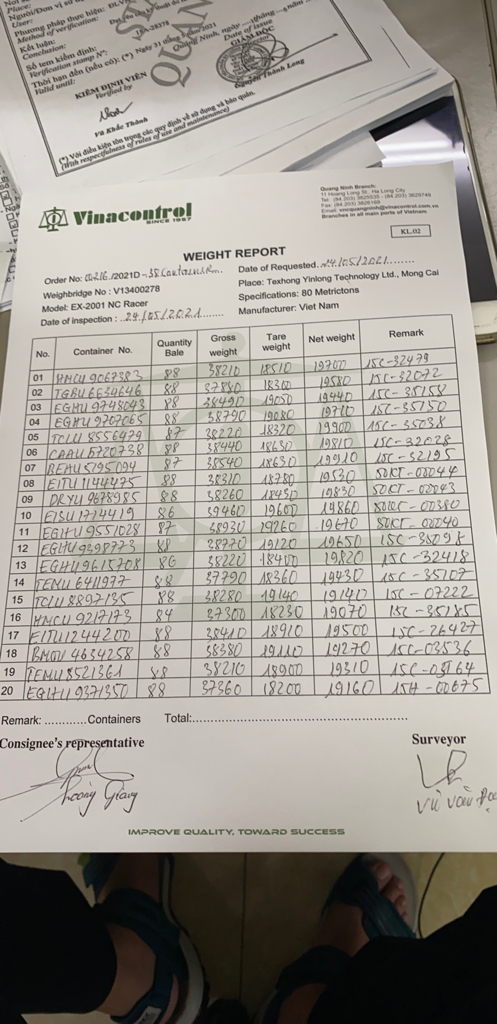 Phương pháp thực hiện: ĐLVN
Method of verification:
Kết luận:
Conclusion:
Số tem kiểm định:
Verification stamp No:
Thời hạn đến (nếu có): (*) Ngày 31 tháng
Valid until:
Quảng Ninh, ngày
Date of issue
KIỂM ĐỊNH VIÊN
Verified by
GIÁM ĐỐC
Vũ Khắc Thành
Nguyễn Thành Long
(*) Với điều kiện tôn trọng các quy định về sử dụng và bảo quản.
(With respectfulness of rules of use and maintenance)
Vinacontrol
SINCE 1957
Quang Ninh Branch:
11 Hoang Long St., Ha Long City
Branches in all main ports of Vietnam
KL.02
WEIGHT REPORT
Order No: 0216/2021D-38 Containers
Date of Requested. 24/05/2021
Weighbridge No : V13400278
Place: Texhong Yinlong Technology Ltd., Mong Cai
Model: EX-2001 NC Racer
Specifications: 80 Metrictons
Date of inspection : 24/05/2021
Manufacturer: Viet Nam
No. Container No. Quantity Bale Gross weight Tare weight Net weight Remark
01 HMCU 9067383 88 38210 18510 19700 15C-32479
02 TGBU 6634646 88 37880 18300 19580 15C-32072
03 EGHU 9748043 88 38490 19050 19440 15C-35158
04 EGHU 9707065 88 38790 19080 19710 15C-35150
05 TCLU 8556479 87 38220 18320 19900 15C-35038
06 CAAU 5720738 88 38440 18630 19810 15C-32028
07 BEAU 5795094 87 38540 18630 19910 15C-32195
08 EITU 1144475 88 38310 18780 19530 50KT-00044
09 DRYU 9678985 88 38260 18430 19830 50KT-00043
10 EISU 1714419 86 39460 19600 19860 50KT-00380
11 EGHU 9551028 87 38930 19260 19670 50KT-00040
12 EGHU 9398773 88 38770 19120 19650 15C-35098
13 EGHU 9615708 86 38220 18400 19820 15C-32418
14 TEMU 6411977 88 37790 18360 19430 15C-35107
15 TCLU 8897135 88 38280 19140 19140 15C-07222
16 HMCU 9217173 84 37300 18230 19070 15C-35185
17 EITU 1244200 88 38410 18910 19500 15C-26427
18 BMOU 4634258 88 38380 19110 19270 15C-03536
19 TEMU 8521361 88 38210 18900 19310 15C-05164
20 EGHU 9371350 88 37360 18200 19160 15H-00675
Remark: ............Containers Total:
Consignee's representative
Surveyor
Hoàng Giang
Vũ Văn
IMPROVE QUALITY, TOWARD SUCCESS